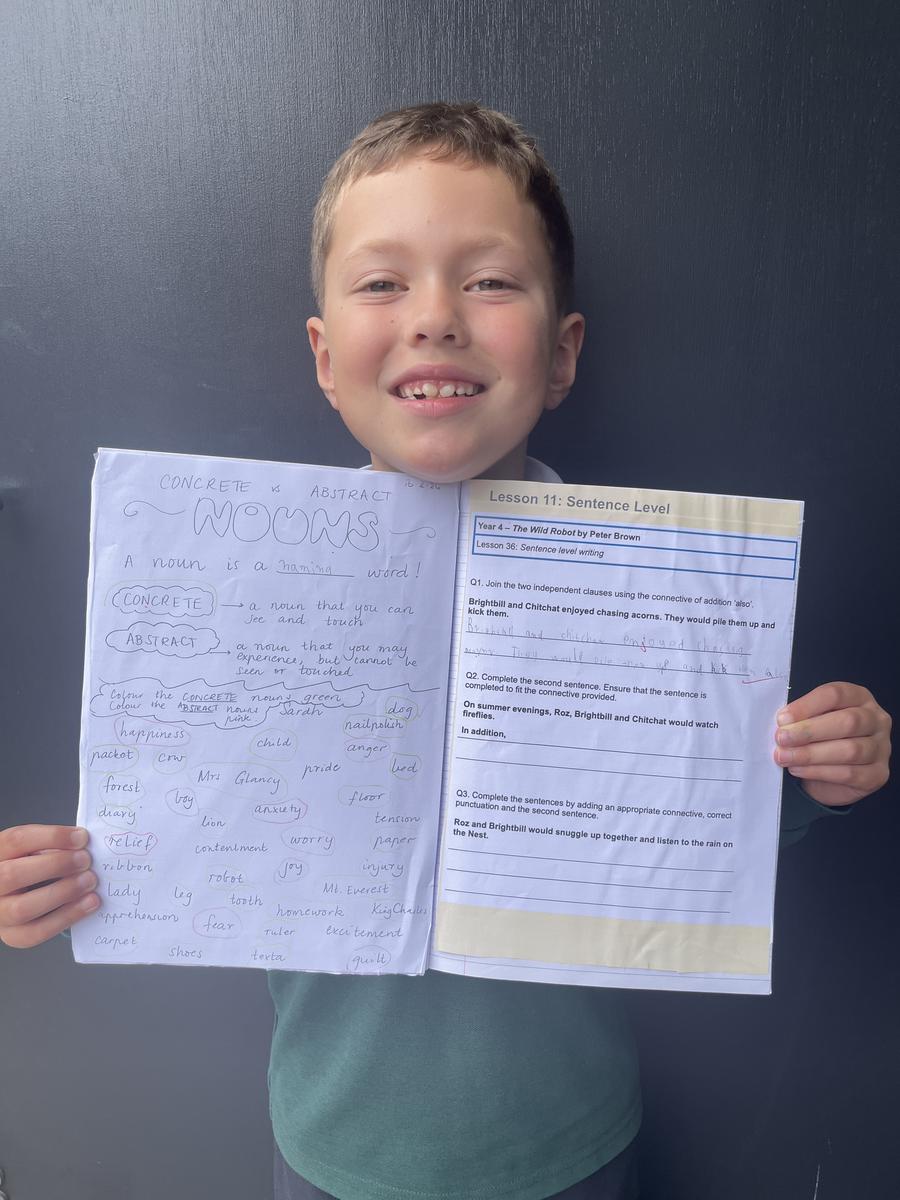 CONCRETE vs ABSTRACT
NOUNS
A noun is a naming word!
CONCRETE → a noun that you can
see and touch
ABSTRACT → a noun that you may
experience, but cannot be
seen or touched
Colour the CONCRETE nouns green
Colour the ABSTRACT nouns
pink
Sardh
dog
happiness
nailpolish
child
anger
packet
cow
pride
bed
Mrs Glancy
forest
boy
anxiety
floor
diary
lion
tension
relief
contentment
worry
paper
ribbon
robot
joy
injury
lady
leg
tooth
Mt. Everest
apprehension
fear
homework
King Charles
ruler
excitement
carpet
shoes
texta
guilt
Lesson 11: Sentence Level
Year 4 – The Wild Robot by Peter Brown
Lesson 36: Sentence level writing
Q1. Join the two independent clauses using the connective of addition 'also'.
Brightbill and Chitchat enjoyed chasing acorns. They would pile them up and
kick them.
and chitchat enjoyed
They would pile them up and kick
Q2. Complete the second sentence. Ensure that the sentence is
completed to fit the connective provided.
On summer evenings, Roz, Brightbill and Chitchat would watch
fireflies.
In addition,
Q3. Complete the sentences by adding an appropriate connective, correct
punctuation and the second sentence.
Roz and Brightbill would snuggle up together and listen to the rain on
the Nest.